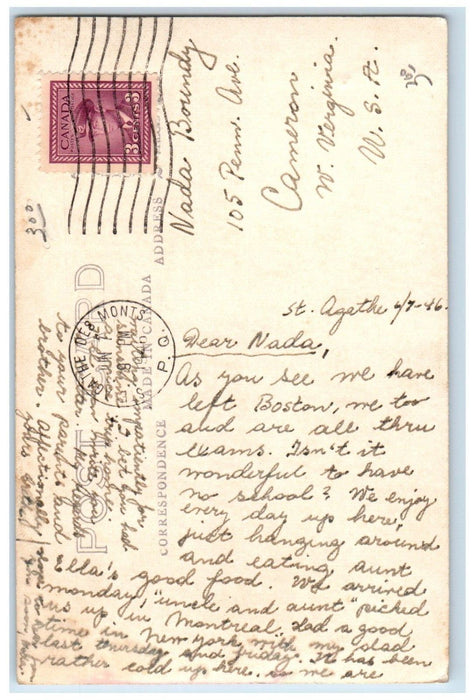 CANADA
3 CENTS 3
Nada Boundy
105 Penn. Ave.
Cameron
W. Verginia
U. S. A.
300
POST CARD
MADE IN CANADA
ADDRESS
CORRESPONDENCE
STE AGATHE DES MONTS
P. Q.
St. Agathe 6/7-46.
Dear Nada,
As you see we have
left Boston, we too
and are all thru
exams. Isn't it
wonderful to have
no school? We enjoy
every day up here,
just hanging around
and eating, aunt
Ella's good food. We arrived
monday, "uncle and aunt" picked
us up in Montreal. Had a good
time in New York with my dad
last thursday and friday. It has been
rather cold up here, so we are
to your parents and
brother. Affectionately